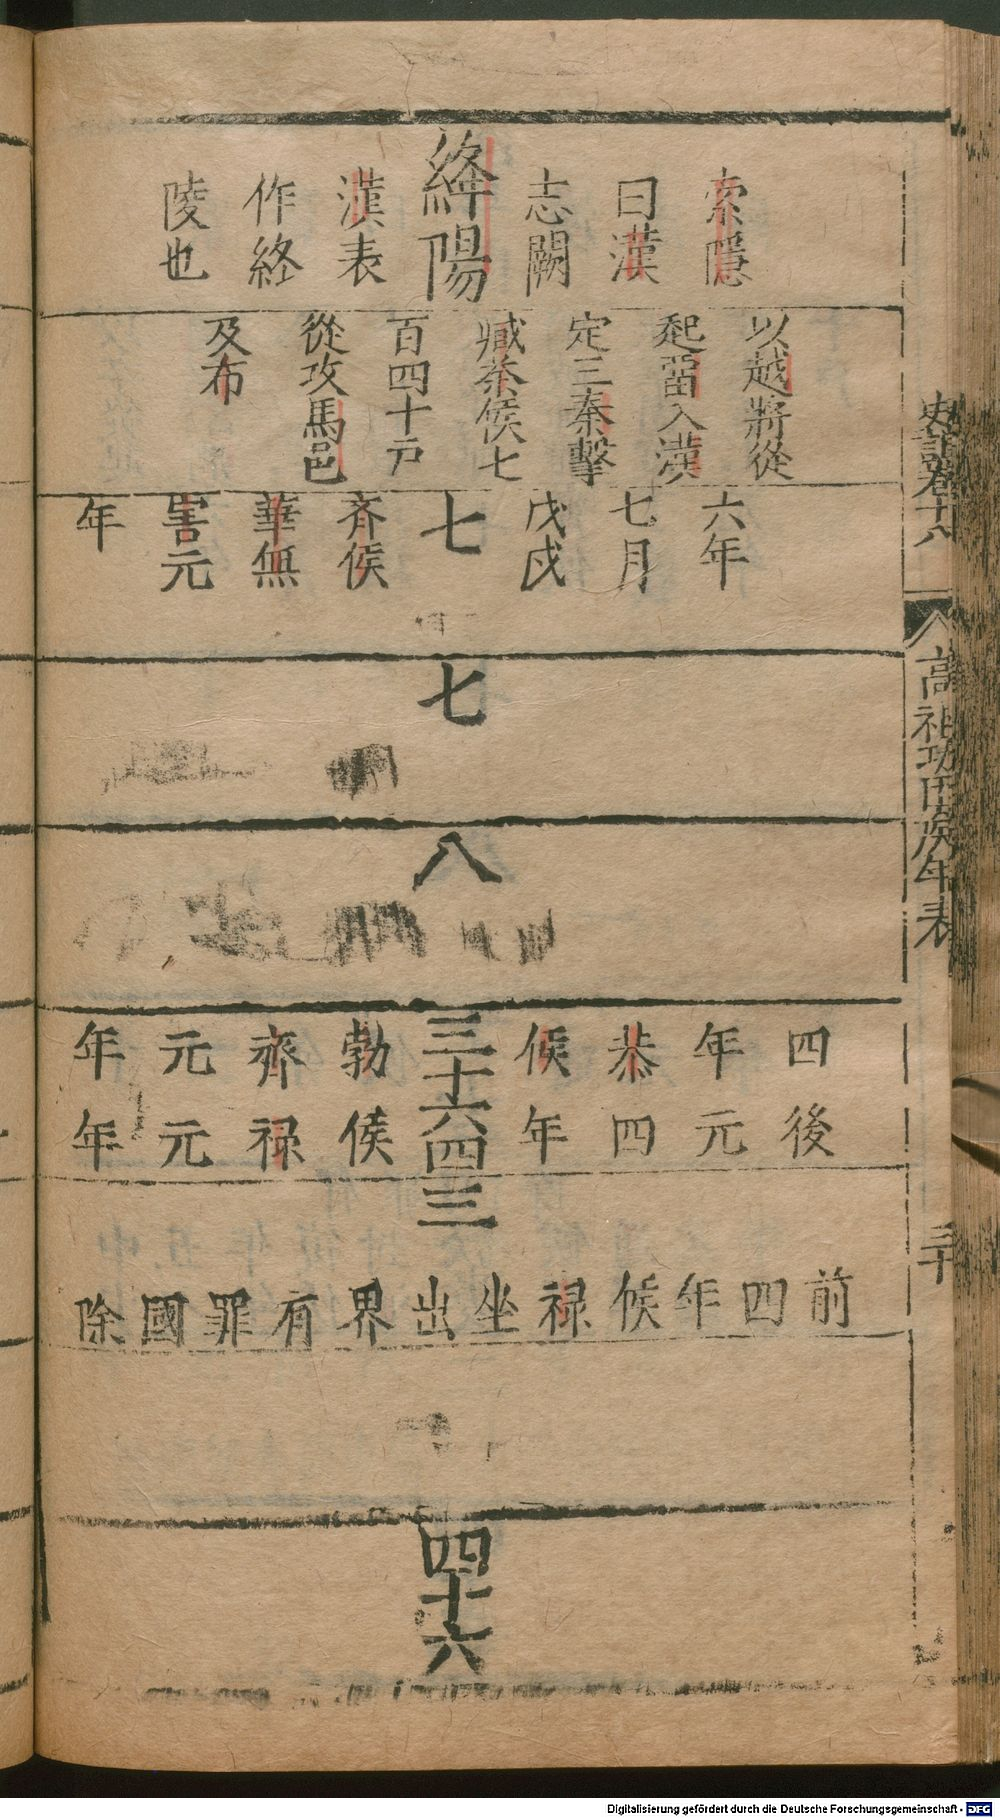 史記卷十八
高祖功臣侯年表
三十
索隱
曰漢
志闕
絳陽
漢表
作終
陵也
以越將從
起留入漢
定三秦擊
臧荼侯七
百四十戶
從攻馬邑
及布
六年
七月
戊戌
七
齊侯
華無
害元
年
七
八
四
年
恭
侯
三十六四
勃
齊
元
年
後
元
四
年
侯
祿
元
年
三
前四年侯祿坐出界有罪國除
四十六
Digitalisierung gefördert durch die Deutsche Forschungsgemeinschaft - DFG